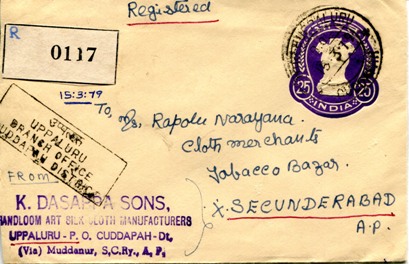 Registered
R
0117
15:3:79
25 INDIA 25
To,
M/s. Rapolu Narayana.
Cloth merchants
Tobacco Bazar.
X. SECUNDERABAD
A.P.
UPPALURU
BRANCH OFFICE
CUDDAPAH DISTRICT
FROM
K. DASAPPA SONS,
HANDLOOM ART SILK CLOTH MANUFACTURERS
UPPALURU - P. O. CUDDAPAH - Dt,
(Via) Muddanur, S,C,Ry., A, P,